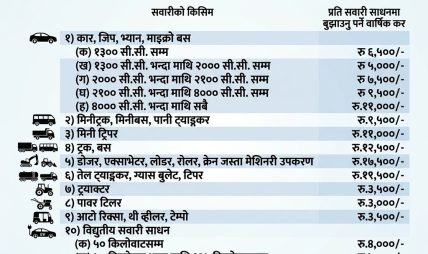 सवारीको किसिम
प्रति सवारी साधनमा
बुझाउनु पर्ने वार्षिक कर
१) कार, जिप, भ्यान, माइक्रो बस
(क) १३०० सी.सी. सम्म रु ६,५००/-
(ख) १३०० सी.सी. भन्दा माथि २००० सी.सी. सम्म रु ५,०००/-
(ग) २००० सी.सी. भन्दा माथि २९०० सी.सी. सम्म रु ७,५००/-
(घ) २९०० सी.सी. भन्दा माथि ४००० सी.सी. सम्म रु ९,५००/-
(ह) ४००० सी.सी. भन्दा माथि सबै रु.११,०००/-
२) मिनीट्रक, मिनीबस, पानी ट्याङ्कर रु.९,५००/-
३) मिनी ट्रिपर रु.११,०००/-
४) ट्रक, बस रु.१२,५००/-
५) डोजर, एक्साभेटर, लोडर, रोलर, क्रेन जस्ता मेशिनरी उपकरण रु.१७,५००/-
६) तेल ट्याङ्कर, ग्यास बुलेट, टिपर रु.१९,५००/-
७) ट्रयाक्टर रु.३,५००/-
८) पावर टिलर रु.३,०००/-
९) आटो रिक्सा, थ्री व्हीलर, टेम्पो रु.३,५००/-
१०) विद्युतीय सवारी साधन
(क) ५० किलोवाटसम्म रु.८,०००/-